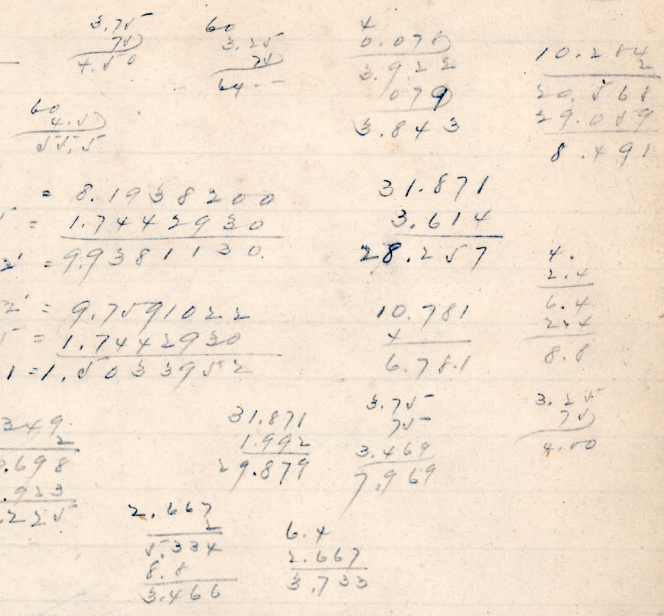 3.75
75
4.50
60
3.25
75
64--
4
0.078
3.922
079
3.843
10.284
2
20.568
29.059
8.491
60
4.5
55.5
= 8.1938200
= 1.7442930
2' = 9.9381130
31.871
3.614
28.257
2' = 9.7591022
5 = 1.7442930
1 = 1.5033952
10.781
4
6.781
4.
2.4
6.4
2.4
8.8
349
2
.698
.923
.225
31.871
1.992
29.879
3.75
75
3.469
7.969
3.25
75
4.00
2.667
2
5.334
8.8
3.466
6.4
2.667
3.733